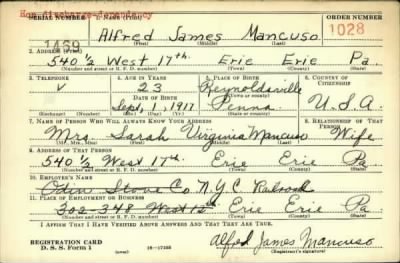 Non-discharge-dependency
ORDER NUMBER
1469 Alfred James Mancuso 1028
(First) (Middle) (Last)
2. ADDRESS (Print)
540 1/2 West 17th. Erie Erie Pa.
(Number and street or R. F. D. number) (Town) (County) (State)
3. TELEPHONE 4. AGE IN YEARS 5. PLACE OF BIRTH 6. COUNTRY OF CITIZENSHIP
V 23 Reynoldsville
DATE OF BIRTH
Sept. 1, 1917 Penna. U.S.A.
(Exchange) (Number) (Mo.) (Day) (Yr.) (State or country)
7. NAME OF PERSON WHO WILL ALWAYS KNOW YOUR ADDRESS 8. RELATIONSHIP OF THAT PERSON
Mrs. Sarah Virginia Mancuso Wife
(Mr., Mrs., Miss) (First) (Middle) (Last)
9. ADDRESS OF THAT PERSON
540 1/2 West 17th. Erie Erie Pa
(Number and street or R. F. D. number) (Town) (County) (State)
10. EMPLOYER'S NAME
Odin Stove Co N.Y.C Railroad
11. PLACE OF EMPLOYMENT OR BUSINESS
302-348 West 12th Erie Erie Pa
(Number and street or R. F. D. number) (Town) (County) (State)
I AFFIRM THAT I HAVE VERIFIED ABOVE ANSWERS AND THAT THEY ARE TRUE.
REGISTRATION CARD
D. S. S. Form 1 (over) 16—17105 Alfred James Mancuso
(Registrant's signature)